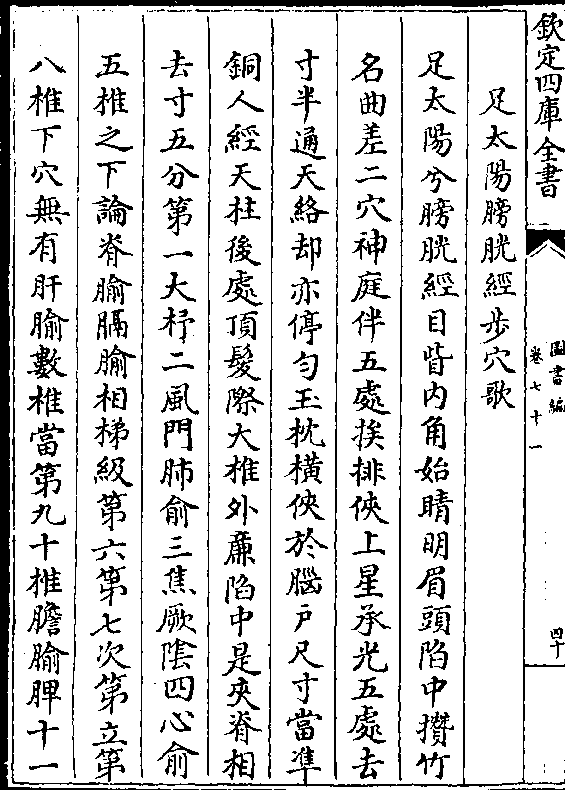 欽定四庫全書
圖書編
卷七十一
四十
足太陽膀胱經步穴歌
足太陽兮膀胱經目眥内角始睛明眉頭陷中攢竹
名曲差二穴神庭伴五處挨排俠上星承光五處去
寸半通天絡却亦停勻玉枕橫俠於腦戶尺寸當準
銅人經天柱後處頂髮際大椎外亷陷中是夾脊相
去寸五分第一大杼二風門肺俞三焦厥陰四心俞
五椎之下論脊腧膈腧相梯級第六第七次第立第
八椎下穴無有肝腧數椎當第九十椎膽腧脾十一